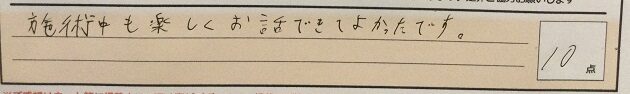 施術中も楽しくお話できてよかったです。
10点